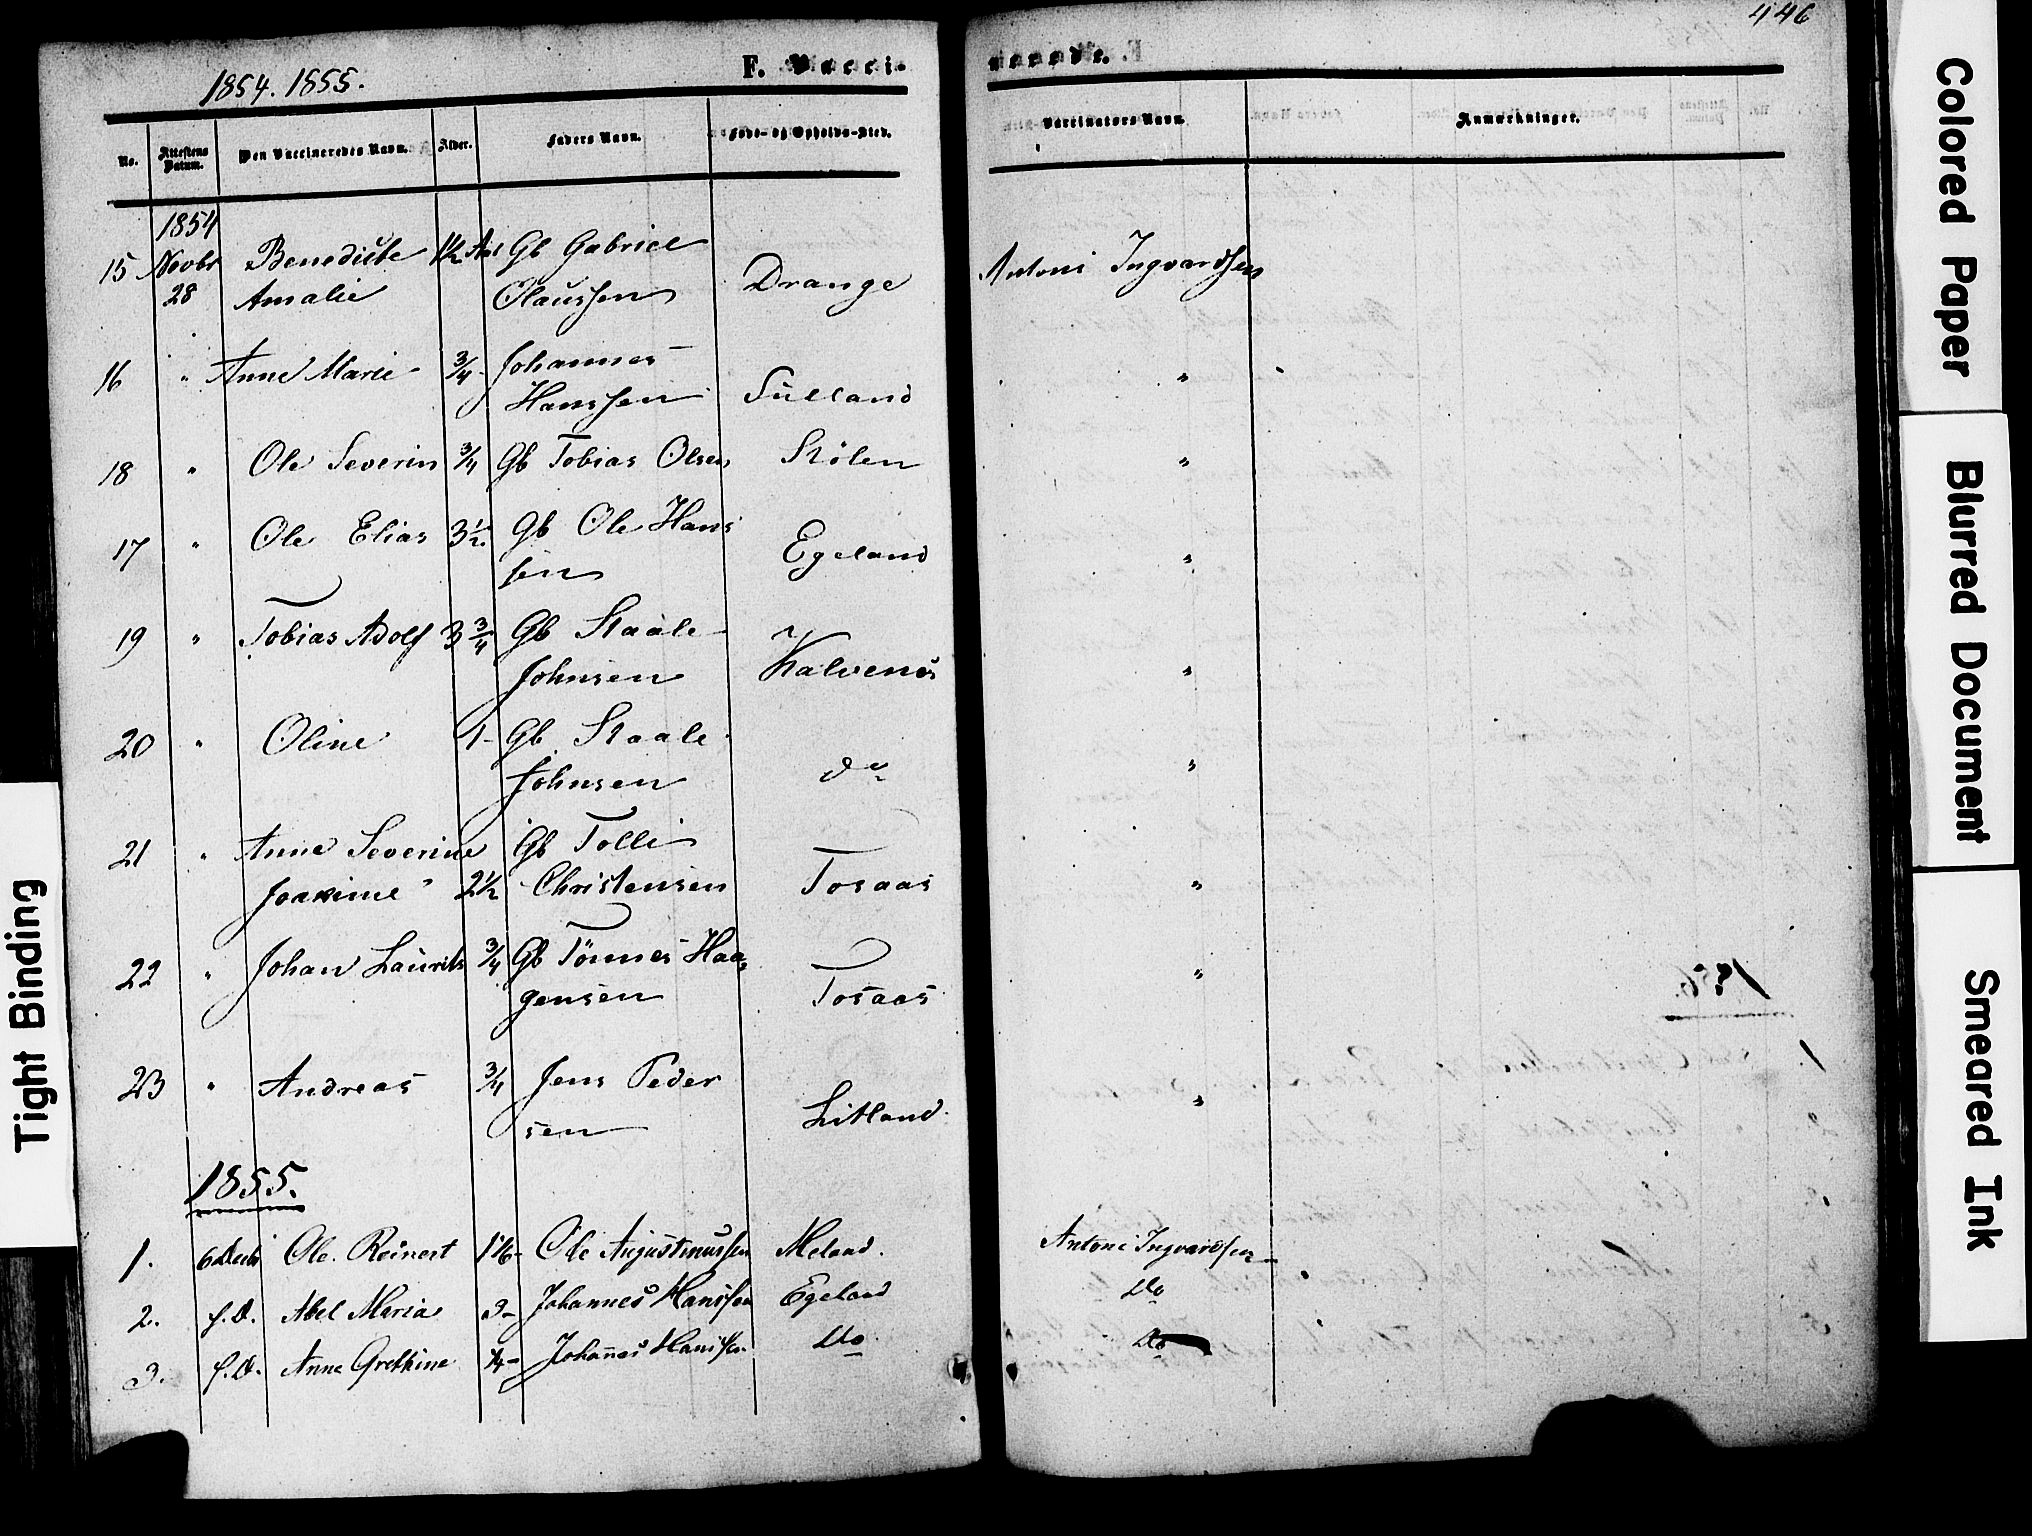 446
1854. 1855.
F. Vacci-
nerede.
No. Attestens Datum. Den Vaccineredes Navn. Alder. Faders Navn. Føde- og Opholds-Sted. Vaccinators Navn. Anmærkninger.
1854
15 Novbr Benedicte 1½ Aar Gb Gabriel
28 Amalie Olaussen Drange Antoni Ingvardsen
16 " Anne Marie ¾ - Johannes
Hanssen "
18 " Ole Severin ¾ Gb Tobias Olsen Stølen "
17 " Ole Elias 3½. Gb Ole Hans
sen Egeland "
19 " Tobias Adolf 3¾ Gb Staale
Johnsen Kalvenes "
20 " Oline 1- Gb Staale
Johnsen do "
21 " Anne Severine Gb Tolli
2½ Christensen Tosaas "
22 " Johan Laurits ¾ Gb Tønnes Haa
gensen Tosaas "
23 " Andreas ¾ Jens Peder
sen Litland "
1855.
1. 6 Ole Reinert Ole Augustinussen Meland. Antoni Ingvardsen
2. s.D. Abel Maria 3- Johannes Hanssen Egeland Do
3. s.D. Anne Grethine ¼- Johannes Hanssen Do Do
Tight Binding
Colored Paper
Blurred Document
Smeared Ink